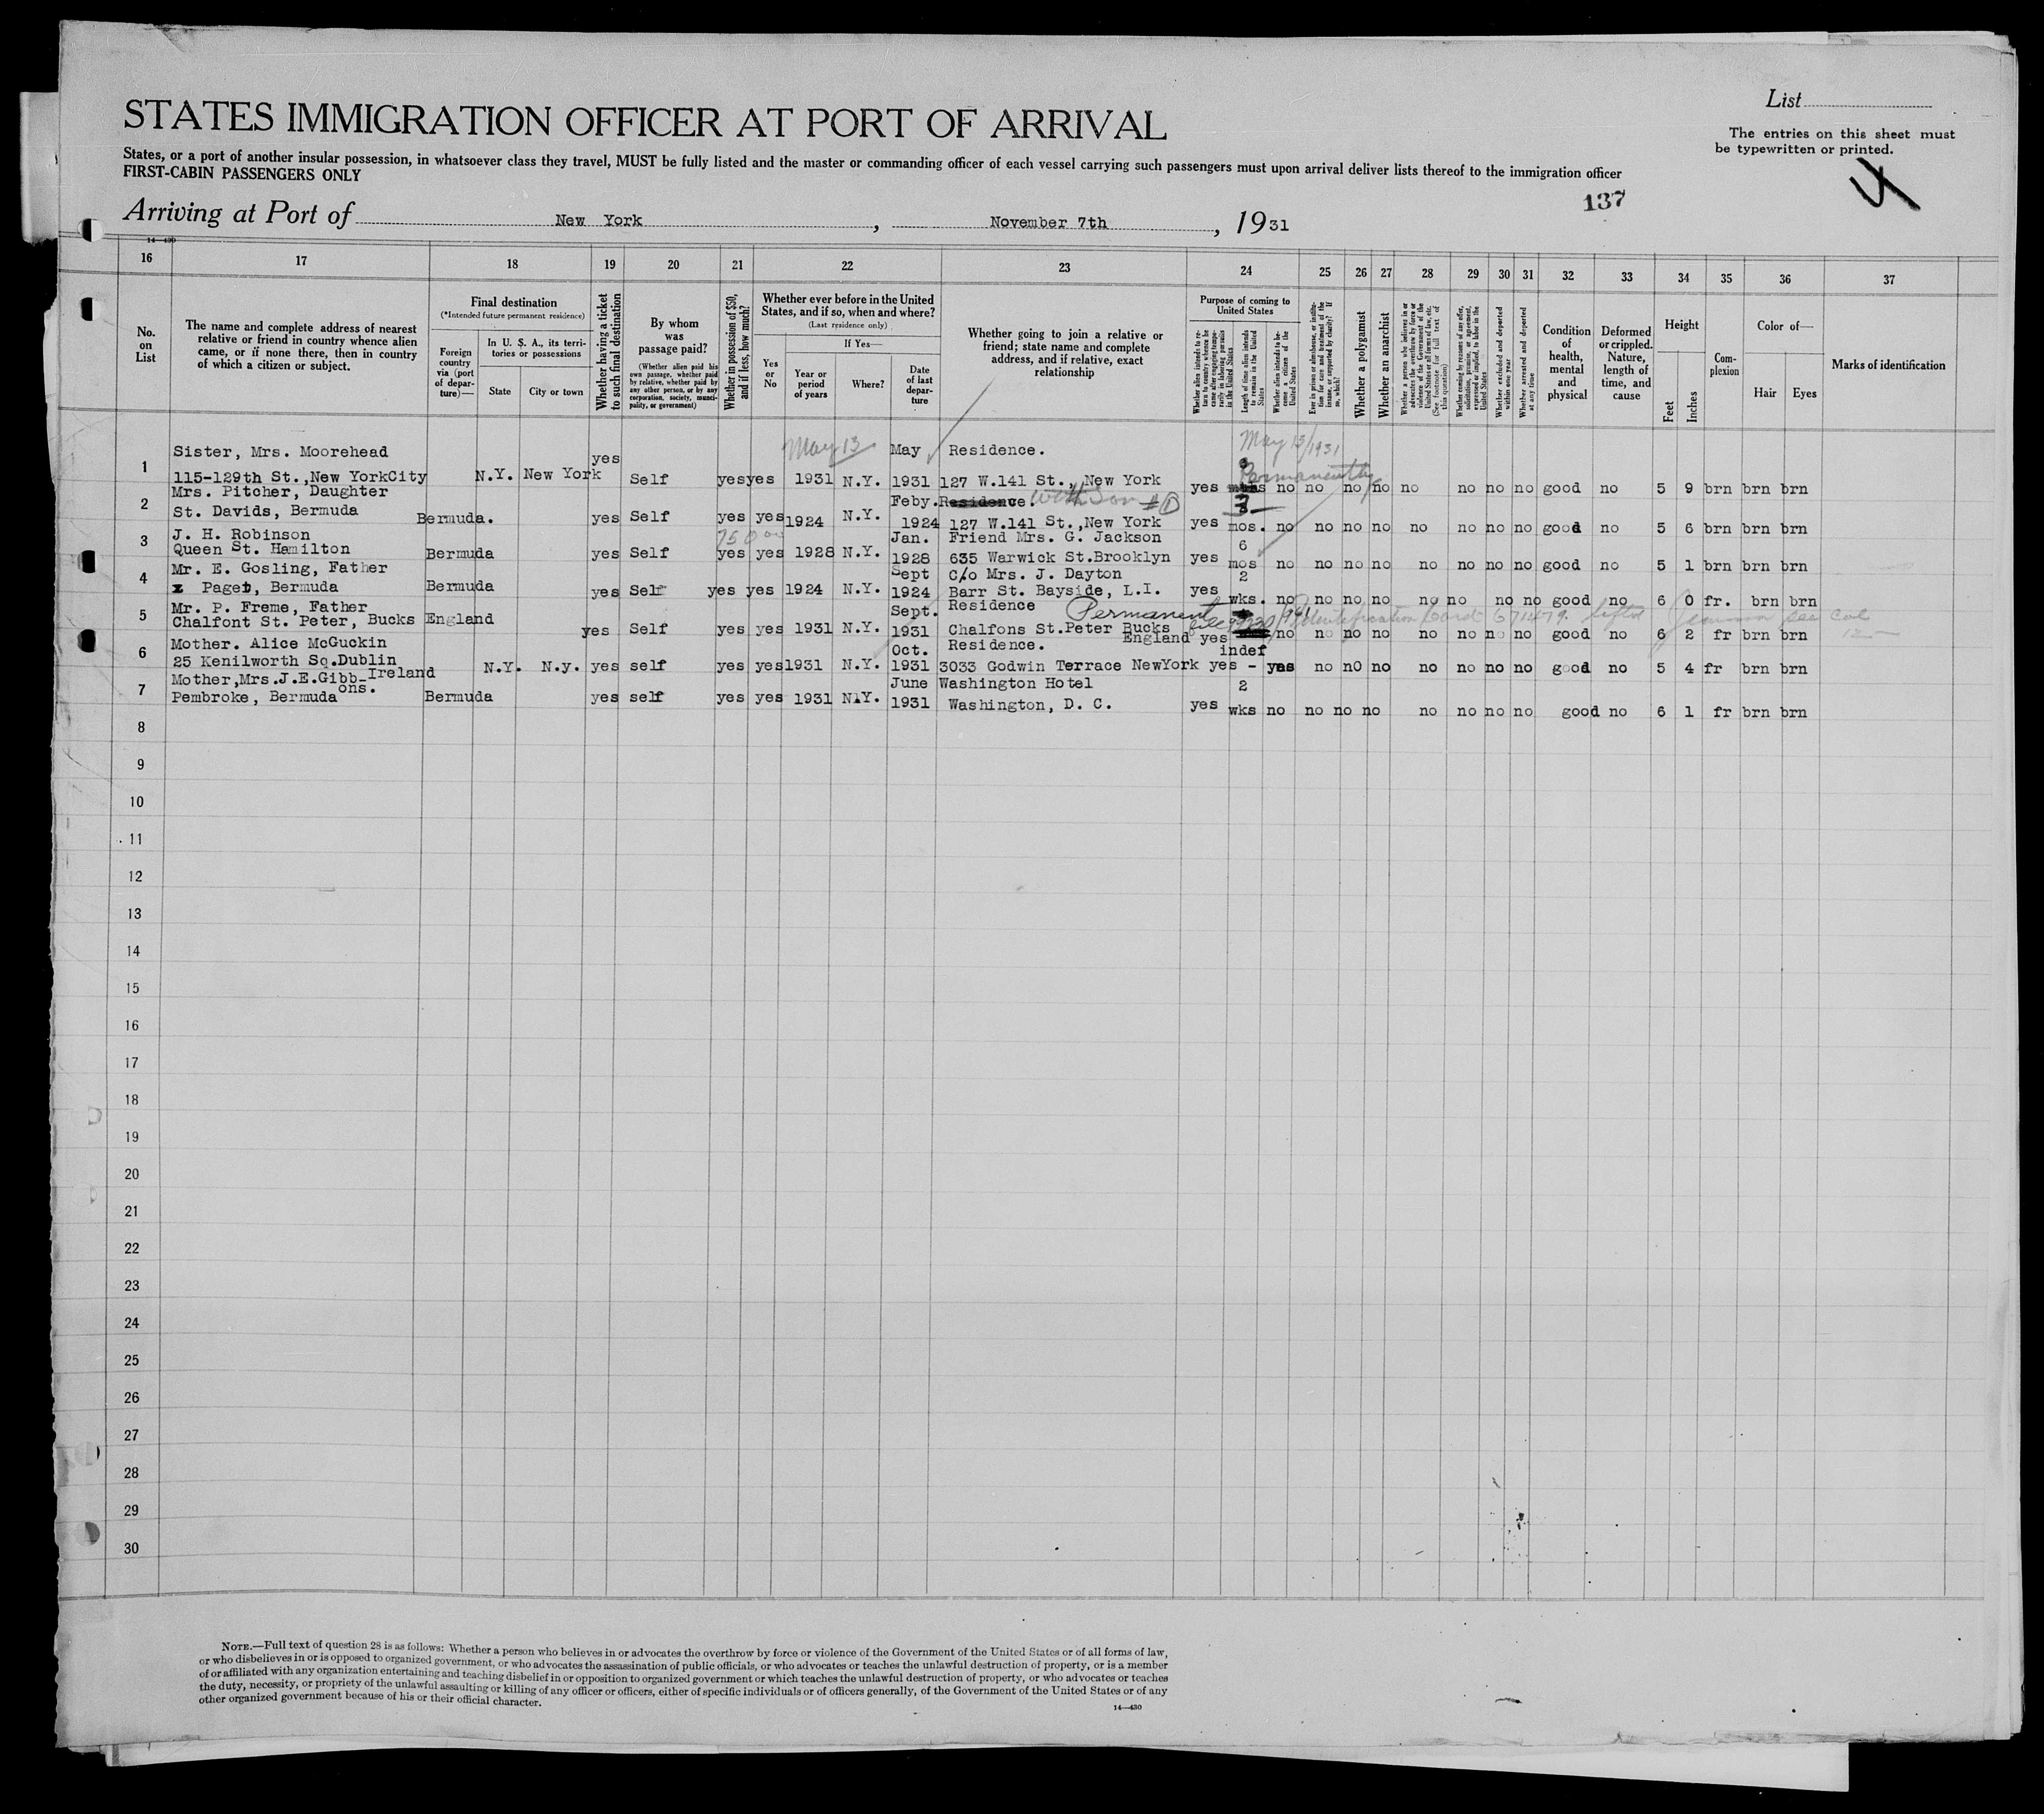 List
STATES IMMIGRATION OFFICER AT PORT OF ARRIVAL
The entries on this sheet must
be typewritten or printed.
States, or a port of another insular possession, in whatsoever class they travel, MUST be fully listed and the master or commanding officer of each vessel carrying such passengers must upon arrival deliver lists thereof to the immigration officer
FIRST-CABIN PASSENGERS ONLY
4
137
Arriving at Port of New York, November 7th, 1931
14—430
16 17 18 19 20 21 22 23 24 25 26 27 28 29 30 31 32 33 34 35 36 37
No. on List
The name and complete address of nearest relative or friend in country whence alien came, or if none there, then in country of which a citizen or subject.
Final destination
(*Intended future permanent residence)
Foreign country via (port of departure)—
In U. S. A., its territories or possessions
State
City or town
Whether having a ticket to such final destination
By whom was passage paid?
(Whether alien paid his own passage, whether paid by relative, whether paid by any other person, or by any corporation, society, municipality, or government)
Whether in possession of $50, and if less, how much?
Whether ever before in the United States, and if so, when and where?
(Last residence only)
Yes or No
If Yes—
Year or period of years
Where?
Date of last departure
Whether going to join a relative or friend; state name and complete address, and if relative, exact relationship
Purpose of coming to United States
Whether alien intends to return to country whence he came after engaging temporarily in laboring pursuits in the United States
Length of time alien intends to remain in the United States
Whether alien intends to become a citizen of the United States
Ever in prison or almshouse, or institution for care and treatment of the insane, or supported by charity? If so, which?
Whether a polygamist
Whether an anarchist
Whether a person who believes in or advocates the overthrow by force or violence of the Government of the United States or all forms of law, etc. (See footnote for full text of this question)
Whether coming by reason of any offer, solicitation, promise, or agreement, expressed or implied, to labor in the United States
Whether excluded and deported within one year
Whether arrested and deported at any time
Condition of health, mental and physical
Deformed or crippled. Nature, length of time, and cause
Height
Feet
Inches
Complexion
Color of—
Hair
Eyes
Marks of identification
Sister, Mrs. Moorehead May 13 May Residence. May 13/1931
1 115-129th St.,New YorkCity N.Y. New York yes Self yes yes 1931 N.Y. 1931 127 W.141 St.,New York yes Permanently no no no no no no no no good no 5 9 brn brn brn
Mrs. Pitcher, Daughter Feby. Residence. With Son 3
2 St. Davids, Bermuda Bermuda. yes Self yes yes 1924 N.Y. 1924 127 W.141 St.,New York yes mos. no no no no no no no no good no 5 6 brn brn brn
J. H. Robinson 750 00 Jan. Friend Mrs. G. Jackson 6
3 Queen St. Hamilton Bermuda yes Self yes yes 1928 N.Y. 1928 635 Warwick St.Brooklyn yes mos no no no no no no no no good no 5 1 brn brn brn
Mr. E. Gosling, Father Sept C/o Mrs. J. Dayton 2
4 x Paget, Bermuda Bermuda yes Self yes yes 1924 N.Y. 1924 Barr St. Bayside, L.I. yes wks. no no no no no no no no good no 6 0 fr. brn brn
Mr. P. Freme, Father Sept. Residence Permanent Identification Card 671479. lifted
5 Chalfont St. Peter, Bucks England yes Self yes yes 1931 N.Y. 1931 Chalfons St.Peter Bucks England yes no no no no no no no no good no 6 2 fr brn brn
Mother. Alice McGuckin Oct. Residence. indef
6 25 Kenilworth Sq.Dublin Ireland N.Y. N.y. yes self yes yes 1931 N.Y. 1931 3033 Godwin Terrace NewYork yes - yes no nO no no no no no good no 5 4 fr brn brn
Mother,Mrs.J.E.Gibb-ons. June Washington Hotel 2
7 Pembroke, Bermuda Bermuda yes self yes yes 1931 N.Y. 1931 Washington, D. C. yes wks no no no no no no no no good no 6 1 fr brn brn
8
9
10
11
12
13
14
15
16
17
18
19
20
21
22
23
24
25
26
27
28
29
30
NOTE.—Full text of question 28 is as follows: Whether a person who believes in or advocates the overthrow by force or violence of the Government of the United States or of all forms of law,
or who disbelieves in or is opposed to organized government, or who advocates the assassination of public officials, or who advocates or teaches the unlawful destruction of property, or is a member
of or affiliated with any organization entertaining and teaching disbelief in or opposition to organized government or which teaches the unlawful destruction of property, or who advocates or teaches
the duty, necessity, or propriety of the unlawful assaulting or killing of any officer or officers, either of specific individuals or of officers generally, of the Government of the United States or of any
other organized government because of his or their official character.
14—430